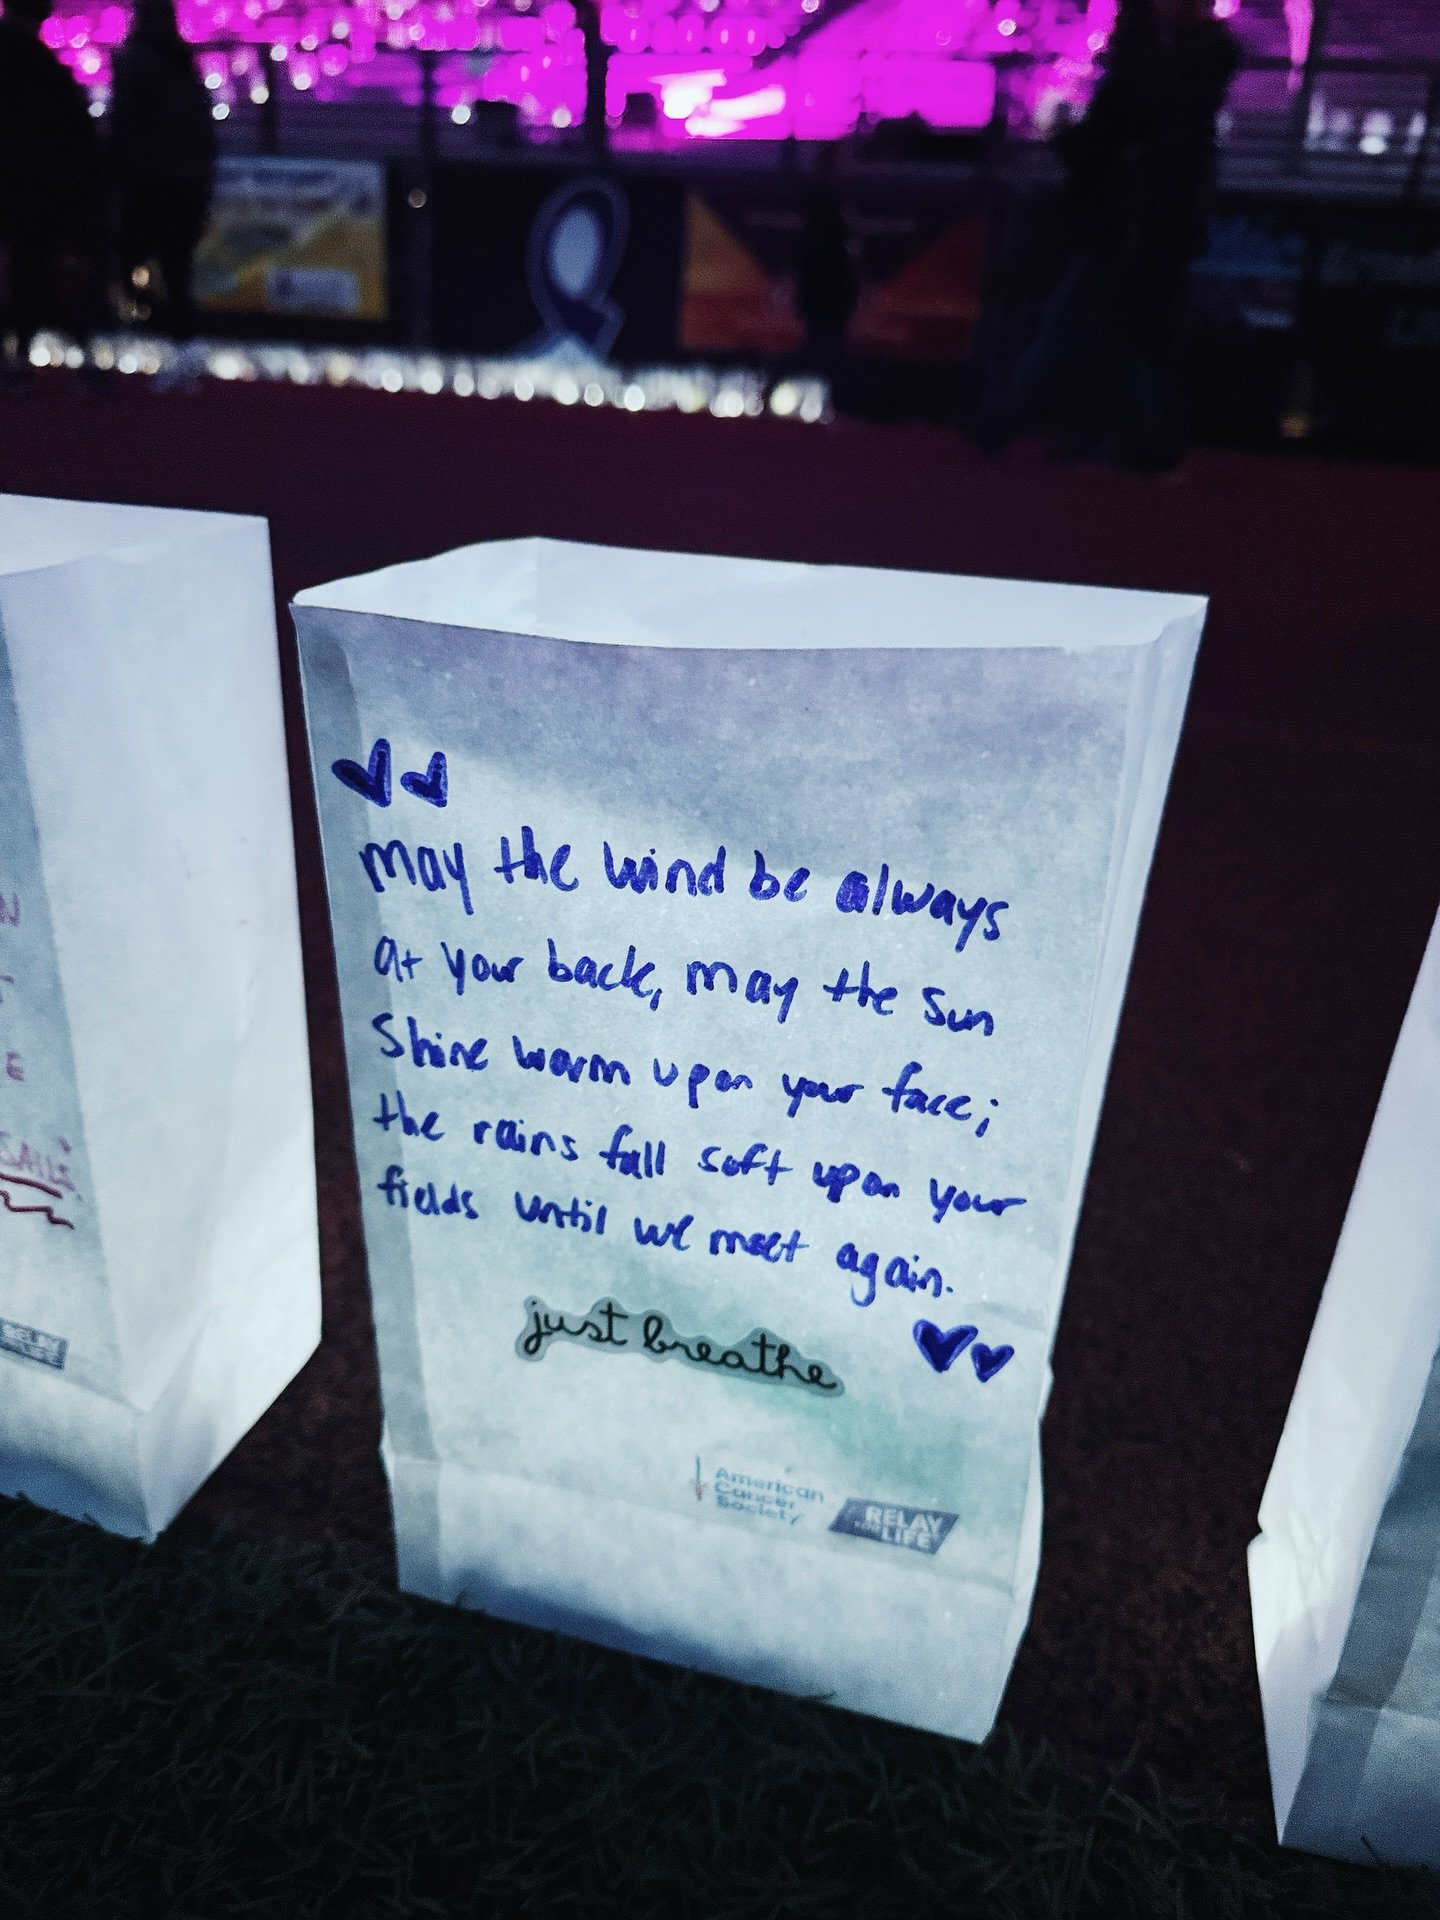 may the wind be always
at your back, may the sun
Shine warm upon your face;
the rains fall soft upon your
fields until we meet again.
just breathe
American
Cancer
Society
RELAY
FOR LIFE
N
T
E
SAIL
RELAY
LIFE